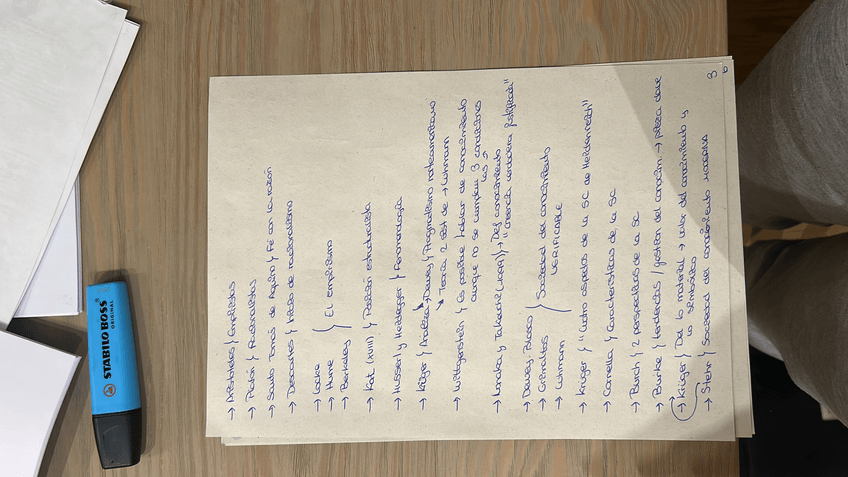 → Aristóteles } Empiristas
→ Platón } Racionalistas
→ Santo Tomás de Aquino } Fe con la razón
→ Descartes } Inicio de racionalismo
→ Locke
→ Hume } El empirismo
→ Berkeley
→ Kat (XVIII) } Posición estructuralista
→ Husserl y Heidegger } Fenomenología
→ Krüger } Dewey } Pragmatismo norteamericano
→ Teoría 2 sist de → Luhmann
→ Wittgenstein } Es posible hablar de conocimiento
aunque no se cumplan 3 condiciones
las
→ Nonaka y Takeuchi (1999) → Def conocimiento
"creencia verdadera justificada"
→ Dewey,
→ } Sociedad del conocimiento
→ Luhmann VERIFICABLE
→ Krüger } "Cuatro aspectos de la SC de Heidenreich"
→ Cornella } Características de la SC
→ Burch } 2 perspectivas de la SC
→ Burke } tendencias / gestión del conocim → pieza clave
→ Krüger } Del lo material → valor del conocimiento y
lo simbólico
→ Stehr } Sociedad del conocimiento MODERNA
3
STABILO BOSS
ORIGINAL